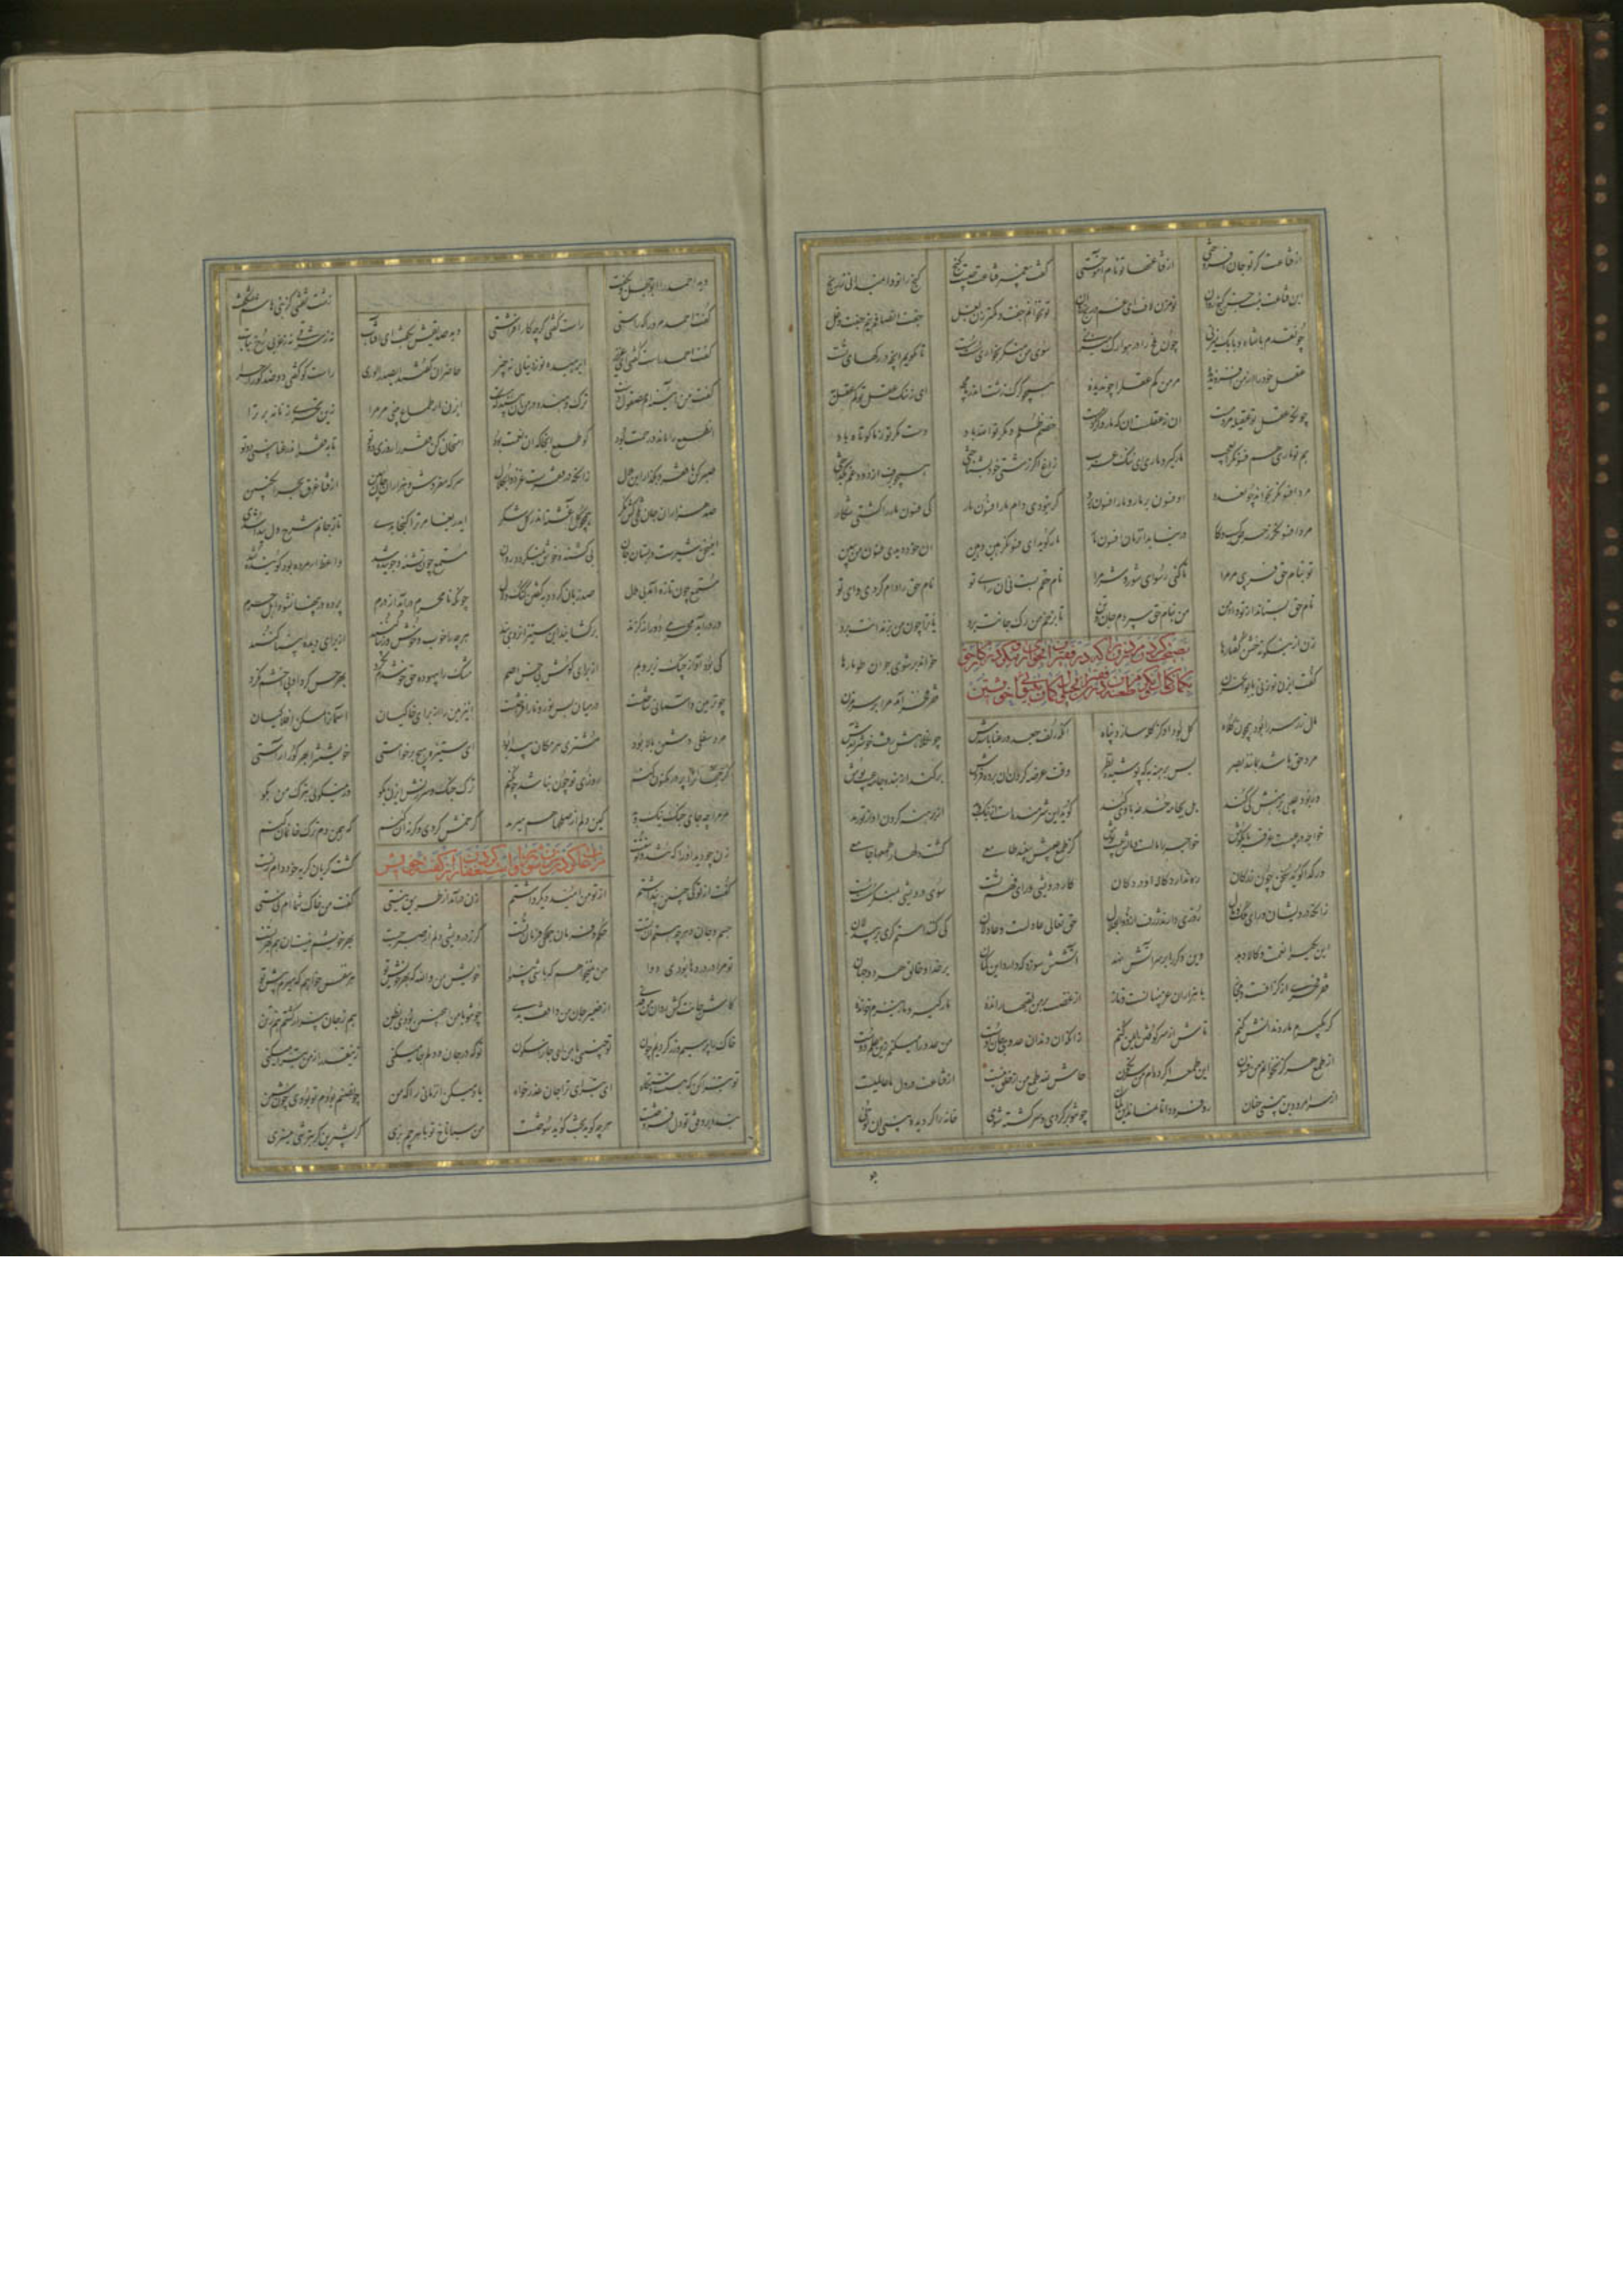 از قناعت کی تو جان افروختی از قناعتها تو نام آموختی
گفت پیغمبر قناعت چیست گنج گنج را تو وا نمیدانی ز رنج
این قناعت نیست جز گنج روان تو مزن لاف ای غم و رنج روان
تو مخوانم جفت و کمتر زن بغل جفت انصافم نیم جفت دغل
چون قدم با شاه و با بک میزنی چون ملخ را در هوا رگ میزنی
سوی من منگر بخواری سست سست تا نگویم آنچه در رگهای تست
عقل خود را از من افزون دیده مر من کم عقل را چون دیده
همچو گرگ زشت اندر ما مجه ای ز ننگ عقل تو بی عقل به
چونکه عقل تو عقیله مردمست آن نه عقلست آن که مار و کژدمست
خصم ظلم و مکر تو الله باد دست مکر تو ز ما کوتاه باد
هم تو ماری هم فسونگر ای عجب مارگیر و ماری ای ننگ عرب
زاغ اگر زشتی خود بشناختی همچو برف از درد و غم بگداختی
مرد افسونگر بخواند چون عدو او فسون بر مار و مار افسون برو
گر نبودی دام مار افسون مار کی فسون مار را گشتی شکار
مرد افسونگر ز حرص کسب و کار درنیابد آن زمان افسون مار
مار گوید ای فسونگر هین و هین آن خود دیدی فسون من ببین
تو بنام حق فریبی مر مرا تا کنی رسوای شور و شر مرا
نام حقم بست نی آن رای تو نام حق را دام کردی وای تو
نام حق بستاند از تو داد من من بنام حق سپردم جان و تن
تا بزخم من رگ جانت برد یا ترا چون من بزندانت برد
زن ازین گونه خشن گفتارها خواند بر شوی جوان طومارها
نصیحت کردن مرد زن را که در فقیران بخواری منگر و در کار حق
بگمان کمال نگر و طعنه مزن در فقر و فقیران بخیال و گمان بینوایی خویشتن
گفت ای زن تو زنی یا بوالحزن فقر فخر آمد مرا بر سر مزن
مال و زر سر را بود همچون کلاه کل بود او کز کله سازد پناه
آنکه زلف جعد و رعنا باشدش چون کلاهش رفت خوشتر آیدش
مرد حق باشد بمانند بصر پس برهنه به که پوشیده نظر
وقت عرضه کردن آن برده فروش برکند از بنده جامه عیب پوش
ور بود عیبی برهنش کی کند بل بجامه خدعه با وی کند
گوید این شرمنده است از نیک و بد از برهنه کردن او از تو رمد
خواجه در عیبست غرقه تا بگوش خواجه را مالست و مالش عیب پوش
کز طمع عیبش نبیند طامعی گشت دلها را طمعها جامعی
ور گدا گوید سخن چون زر کان ره نیابد کاله او در دکان
کار درویشی ورای فهم تست سوی درویشی بمنگر سست سست
زانکه درویشان ورای ملک و مال روزی دارند ژرف از ذوالجلال
حق تعالی عادلست و عادلان کی کنند استمگری بر بیدلان
این یکی را نعمت و کالا دهد وین دگر را بر سر آتش نهد
آتشش سوزد که دارد این گمان بر خدا و خالق هر دو جهان
فقر فخری از گزافست و مجاز یا هزاران عز پنهانست و ناز
از غضب بر من لقبها راندی مارگیر و مارگیرم خواندی
گر بگیرم مار دندانش کنم تاش از سر کوفتن ایمن کنم
زانکه آن دندان عدو جان اوست من عدو را میکنم زین علم دوست
از طمع هرگز نخوانم من فسون این طمع را کرده‌ام من سرنگون
حاش لله طمع من از خلق نیست از قناعت در دل ما عالمیست
از سر امرودبن بینی چنان رو فرود آ تا نماند آن گمان
چو تو برگردی و سرگشته شوی خانه را گردیده بینی آن توئی
دید احمد را ابوجهل و بگفت زشت نقشی کز بنی هاشم شکفت
گفت احمد مر ورا که راستی راست گفتی گرچه کار افزاستی
دید صدیقش بگفت ای آفتاب نه ز شرقی نه ز غربی خوش بتاب
گفت احمد راست گفتی ای عزیز ای رهیده تو ز دنیای نه چیز
حاضران گفتند ای صدر الوری راست گو گفتی دو ضد گو را چرا
گفت من آیینه‌ام مصقول دست ترک و هندو در من آن بیند که هست
ای زن ار طماع می بینی مرا زین تحری زنانه برتر آ
آن طمع را ماند و رحمت بود کو طمع آنجا که آن نعمت بود
امتحان کن فقر را روزی دو تو تا به فقر اندر غنا بینی دو تو
صبر کن با فقر و بگذار این ملال زانکه در فقرست عز ذوالجلال
سرکه مفروش و هزاران جان ببین از قناعت غرق بحر انگبین
صد هزاران جان تلخی کش نگر همچو گل آغشته اندر گلشکر
ای دریغا مر ترا گنجا بدی تا ز جانم شرح دل پیدا شدی
این سخن شیرست در پستان جان بی کشنده خوش نمیگردد روان
مستمع چون تشنه و جوینده شد واعظ ار مرده بود گوینده شد
مستمع چون تازه آید بی ملال صد زبان گردد به گفتن گنگ و لال
چونکه نامحرم درآید از درم پرده در پنهان شوند اهل حرم
ور درآید محرمی دور از گزند برگشایند آن ستیران روی بند
هرچه را خوب و خوش و زیبا کنند از برای دیده بینا کنند
کی بود آواز چنگ و زیر و بم از برای گوش بی حس اصم
مشک را بیهوده حق خوش دم نکرد بهر حس کرد او پی اخشم نکرد
حق زمین و آسمان بر ساختست در میان بس نور و نار افراختست
این زمین را از برای خاکیان آسمان را مسکن افلاکیان
مرد سفلی دشمن بالا بود مشتری هر مکان پیدا بود
ای ستیره هیچ برخواستی خویشتن را بهر کور آراستی
گر جهان را پر در مکنون کنم روزی تو چون نباشد چون کنم
ترک جنگ و سرزنش ای زن بگو ور نمیگویی بترک من بگو
مر مرا چه جای جنگ نیک و بد کین دلم از صلحها هم میرمد
گر خمش کردی و گرنه آن کنم که همین دم ترک خان و مان کنم
مراعات کردن زن شوی را و استغفار کردن از گفته خویش
زن چو دید او را که تند و توسنست گشت گریان گریه خود دام زنست
گفت از تو کی چنین پنداشتم از تو من امید دیگر داشتم
زن درآمد از طریق نیستی گفت من خاک شما ام نی ستی
جسم و جان و هرچه هستم آن تست حکم و فرمان جملگی فرمان تست
گر ز درویشی دلم از صبر جست بهر خویشم نیست آن بهر تست
تو مرا در دردها بودی دوا من نمیخواهم که باشی بینوا
خویش من والله که بهر خویش تو هر نفس خواهد که میرد پیش تو
کاش جانت کش روان من فدی از ضمیر جان من واقف بدی
چون تو با من این چنین بودی بظن هم ز جان بیزار گشتم هم ز تن
خاک را بر سیم و زر کردیم چون تو چنینی با من ای جان را سکون
تو که در جان و دلم جا میکنی زین قدر از من تبرا میکنی
تو تبرا کن که هستت دستگاه ای تبرای ترا جان عذرخواه
یاد میکن آن زمانی را که من چون صنم بودم تو بودی چون شمن
بنده بر وفق تو دل افروختست هرچه گویی پخت گوید سوختست
من سپاناخ تو با هرچم پزی